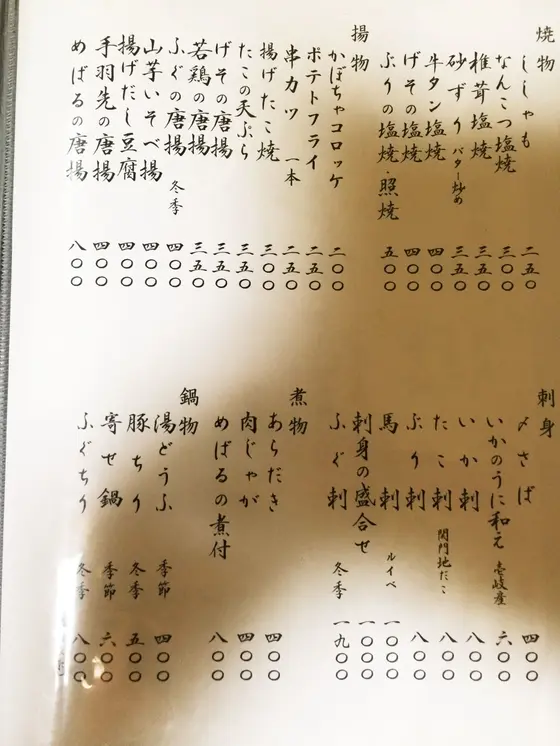 焼物
ししゃも 二五〇
なんこつ塩焼 三〇〇
椎茸塩焼 三五〇
砂ずりバター炒め 三五〇
牛タン塩焼 四〇〇
げその塩焼 四〇〇
ぶりの塩焼・照焼 五〇〇
揚物
かぼちゃコロッケ 二〇〇
ポテトフライ 二五〇
串カツ 一本 二五〇
揚げたこ焼 三〇〇
たこの天ぷら 三五〇
げその唐揚 三五〇
若鶏の唐揚 三五〇
ふぐの唐揚 冬季 四〇〇
山芋いそべ揚 四〇〇
揚げだし豆腐 四〇〇
手羽先の唐揚 四〇〇
めばるの唐揚 八〇〇
刺身
〆さば 四〇〇
いかのうに和え 壱岐産 六〇〇
いか刺 八〇〇
たこ刺 関門地だこ 八〇〇
ぶり刺 八〇〇
馬刺 ルイベ 一〇〇〇
刺身の盛合せ 一〇〇〇
ふぐ刺 冬季 一九〇〇
煮物
あらだき 四〇〇
肉じゃが 四〇〇
めばるの煮付 八〇〇
鍋物
湯どうふ 季節 四〇〇
豚ちり 冬季 五〇〇
寄せ鍋 季節 六〇〇
ふぐちり 冬季 八〇〇